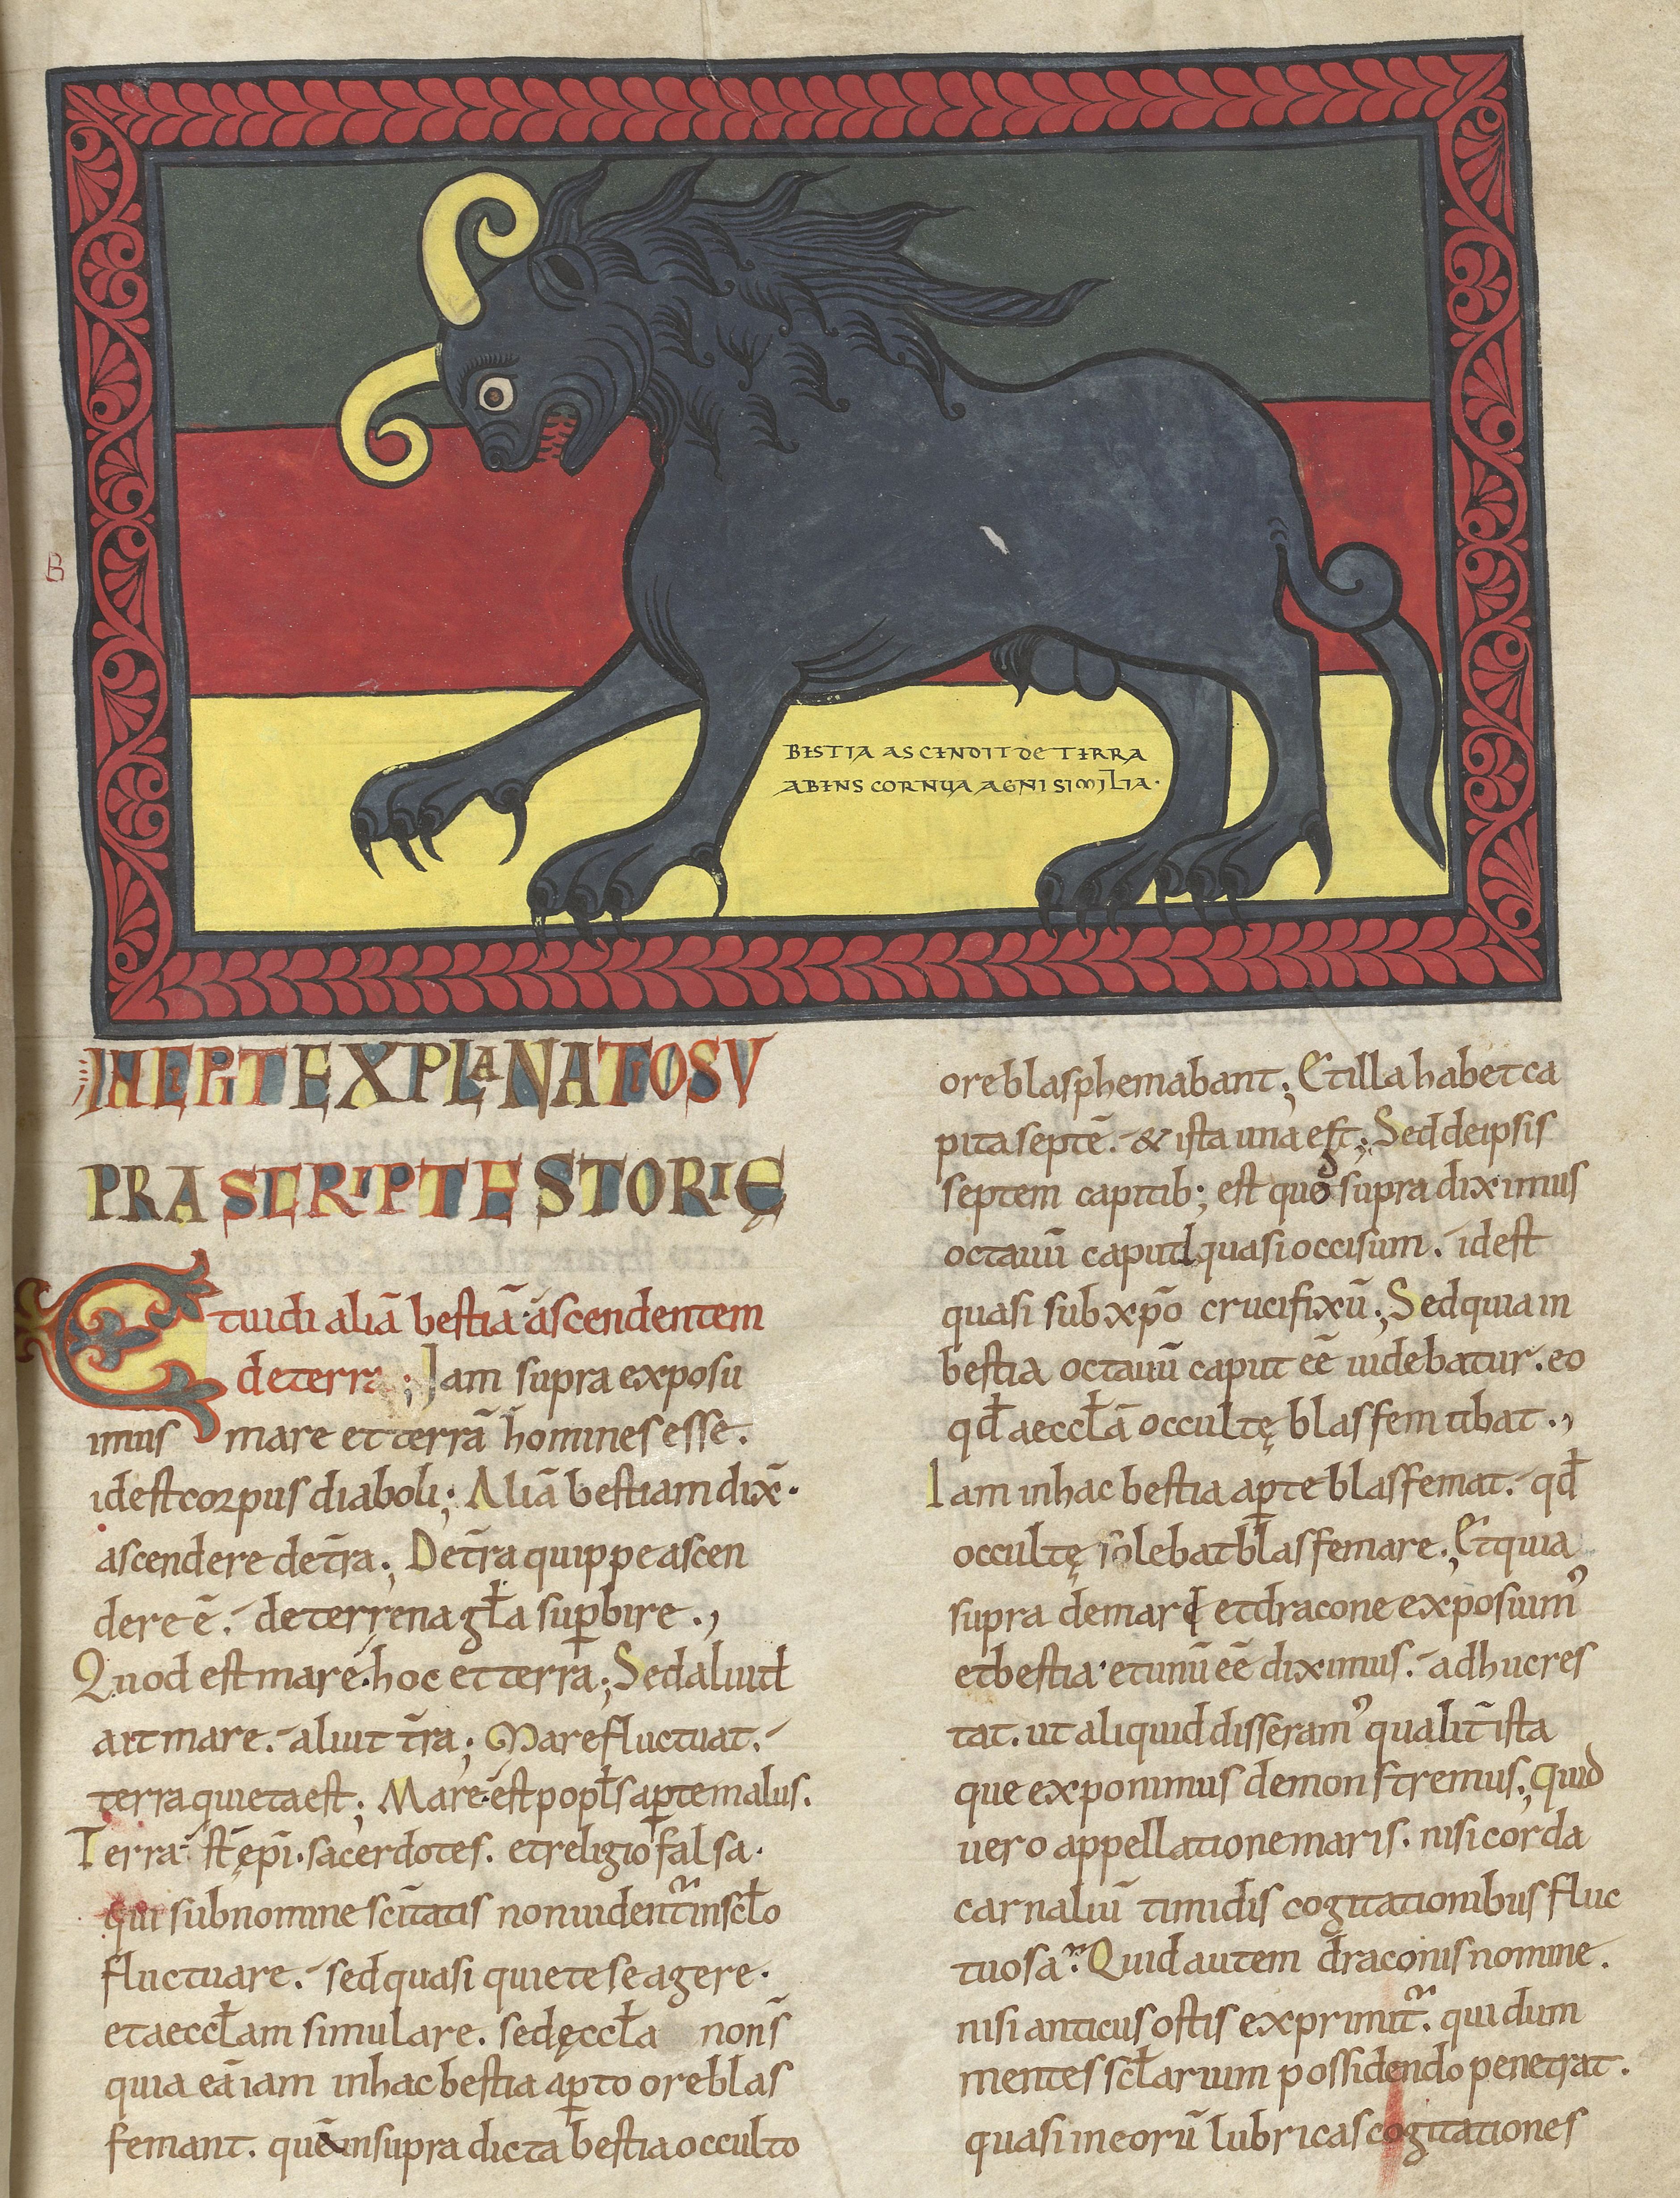 BISTIA ASCINDIT DE TIRRA
ABINS CORNUA AGNI SIMILIA·
B
INCIPIT EXPLANATIO SU
PRA SCRIPTE STORIĘ
Et uidi aliā bestiā ascendentem
de terra; Iam supra exposu
imus mare et terrā homines esse.
id est corpus diaboli; Aliā bestiam dix̄·
ascendere de tr̄a; De tr̄a quippe ascen
dere ē. de terrena gl̄a sup̱bire.,
Quod est mare· hoc et terra; Sed aliut
ait mare. aliut tr̄a; Mare fluctuat.
terra quieta est; Mare· est popl̄s ap̱te malus.
Terra· st̄ ęp̄i· sacerdotes. et religio falsa·
qui sub nomine sc̄itatis non uident᷑ in scl̄o
fluctuare. sed quasi quiete se agere·
et aeccl̄am simulare. sed ęccl̄a non s̄
quia eā iam in hac bestia ap̱to ore blas
femant. quē in supra dicta bestia occulto
ore blasphemabant; Et illa habet ca
pita septē. & ista una est; Sed de ipsis
septem capitib; est quod supra diximus
octauū caput quasi occisum. id est
quasi sub xp̄o crucifixū; Sed quia in
bestia octauū caput eē uidebatur. eo
qd̄ aeccl̄ā occultę blasfemabat.,
Iam in hac bestia ap̱te blasfemat. qd̄
occultę solebat blasfemare; Et quia
supra de mare et dracone exposuim᾽
et bestia· et unū eē diximus. adhuc res
tat. ut aliquid disseram᾽ qualit̄ ista
que exponimus demonstremus; quid
uero appellatione maris. nisi corda
carnaliū timidis cogitationibus fluc
tuosa; Quid autem draconis nomine.
nisi anticus ostis exprimit᷑. qui dum
mentes scl̄arium possidendo penetrat.
quasi in eorū lubricas cogitationes